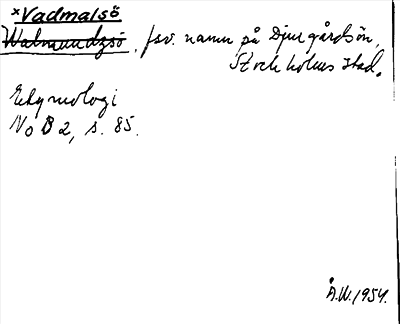 ×Vadmalsö
Walmundzsö, fsv. namn på Djurgårdsön,
Stockholms stad.
Etymologi
NoB 2, s. 85.
Å.W. 1954.